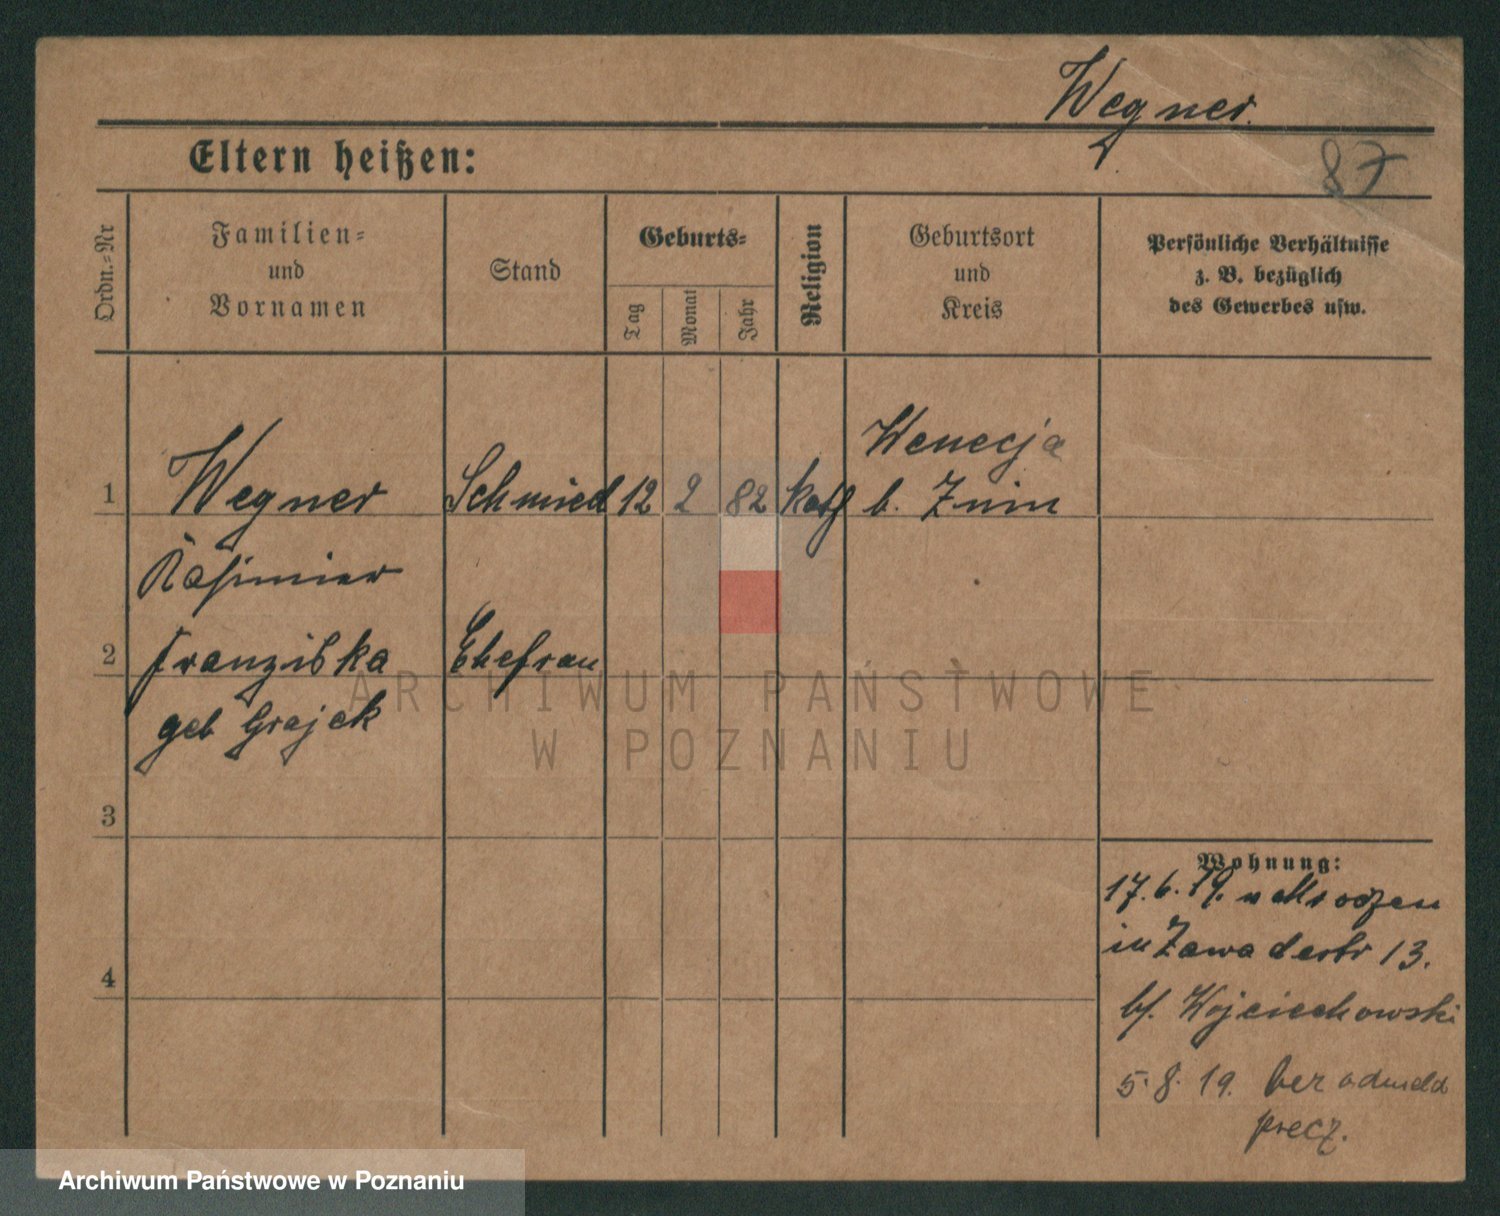 Wegner.
87
Eltern heißen:
Ordn.-Nr
Familien-
und
Vornamen
Stand
Geburts-
Tag
Monat
Jahr
Religion
Geburtsort
und
Kreis
Persönliche Verhältnisse
z. B. bezüglich
des Gewerbes usw.
Wenecja
1 Wegner Schmied 12 2 82 kath b. Znin
Kasimier
2 Franziska Ehefrau
geb Grajek
3
4
Wohnung:
17.6.19. v Mroczen
in Zawadestr 13.
bf. Wojciechowski
5.8.19. bez odmeld
precz.
ARCHIWUM PAŃSTWOWE
W POZNANIU
Archiwum Państwowe w Poznaniu